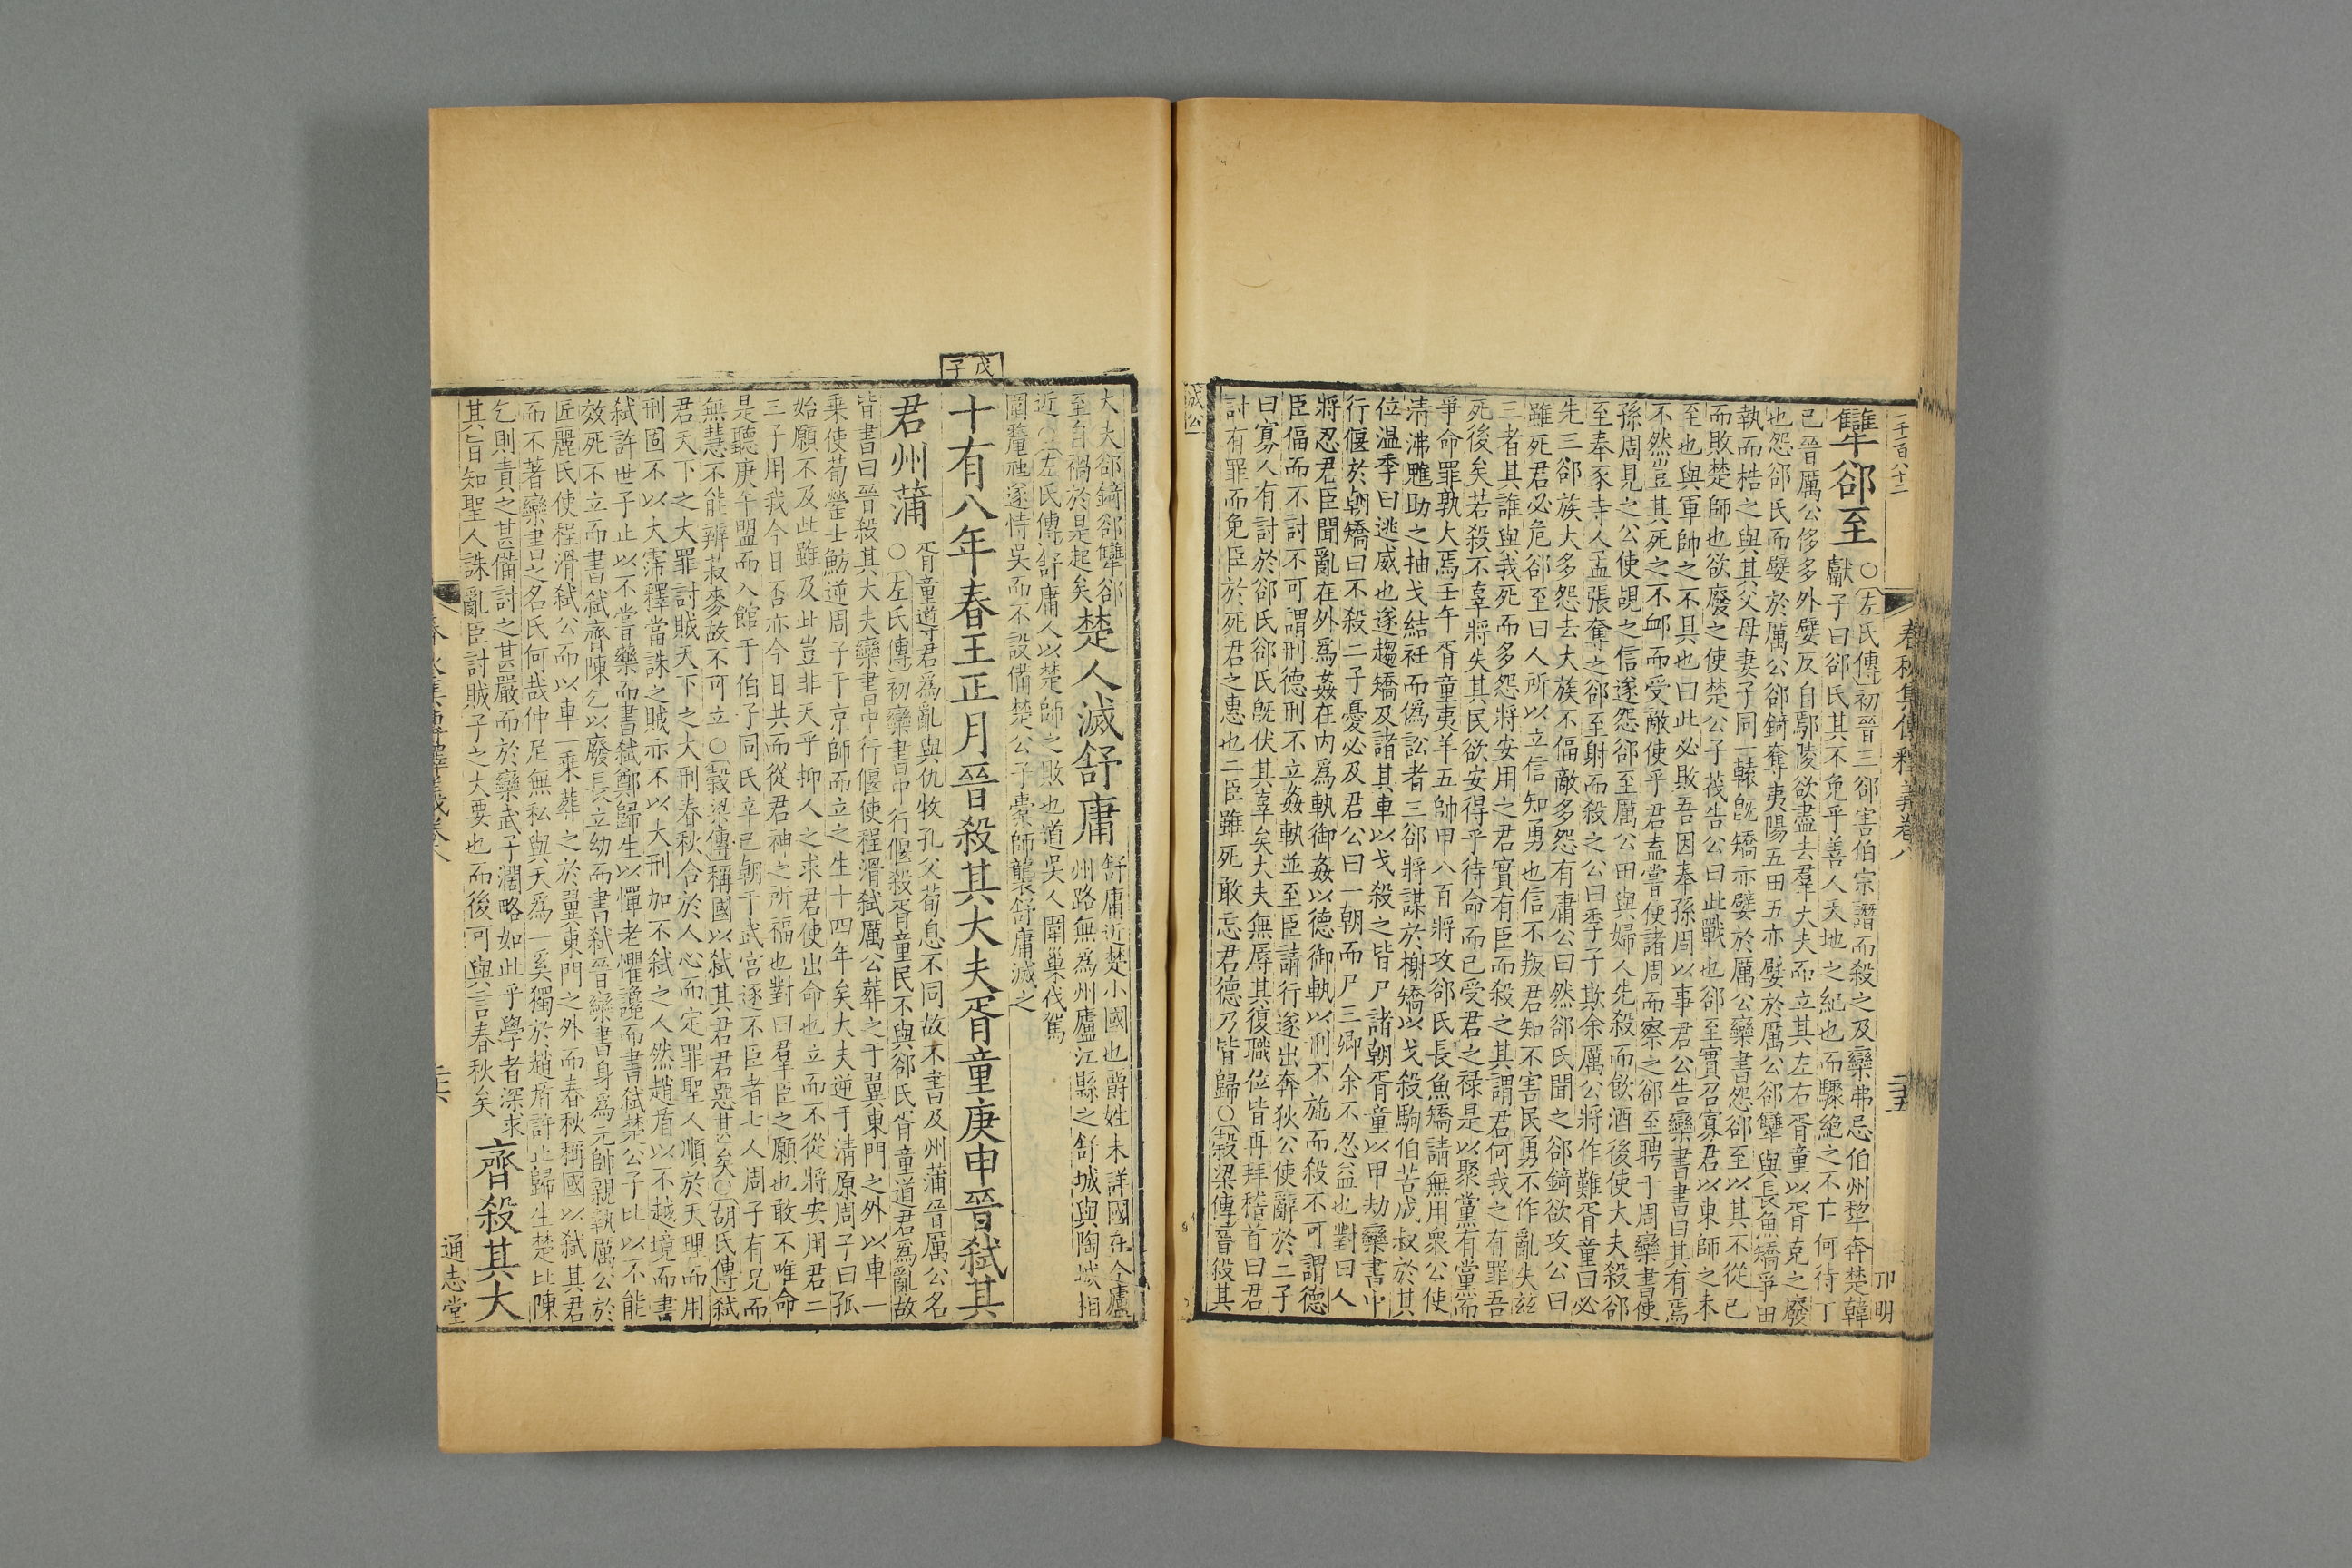 一千一百八十二
春秋集傳釋義卷八
二十五
卭明
犨郤至
○左氏傳初晉三郤害伯宗譖而殺之及欒弗忌伯州犂奔楚韓
獻子曰郤氏其不免乎善人天地之紀也而驟絶之不亡何待丁
已晉厲公侈多外嬖反自鄢陵欲盡去羣大夫而立其左右胥童以胥克之廢
也怨郤氏而嬖於厲公郤錡奪夷陽五田五亦嬖於厲公郤犨與長魚矯爭田
執而梏之與其父母妻子同一轅旣矯亦嬖於厲公欒書怨郤至以其不從已
而敗楚師也欲廢之使楚公子茷告公曰此戰也郤至實召寡君以東師之未
至也與軍帥之不具也曰此必敗吾因奉孫周以事君公告欒書書曰其有焉
不然豈其死之不卹而受敵使乎君盍嘗使諸周而察之郤至聘于周欒書使
孫周見之公使覘之信遂怨郤至厲公田與婦人先殺而飲酒後使大夫殺郤
至奉豕寺人孟張奪之郤至射而殺之公曰季子欺余厲公將作難胥童曰必
先三郤族大多怨去大族不偪敵多怨有庸公曰然郤氏聞之郤錡欲攻公曰
雖死君必危郤至曰人所以立信知勇也信不叛君知不害民勇不作亂失茲
三者其誰與我死而多怨將安用之君實有臣而殺之其謂君何我之有罪吾
死後矣若殺不辜將失其民欲安得乎待命而已受君之祿是以聚黨有黨而
爭命罪孰大焉壬午胥童夷羊五帥甲八百將攻郤氏長魚矯請無用衆公使
清沸魋助之抽戈結衽而僞訟者三郤將謀於榭矯以戈殺駒伯苦成叔於其
位温季曰逃威也遂趨矯及諸其車以戈殺之皆尸諸朝胥童以甲劫欒書中
行偃於朝矯曰不殺二子憂必及君公曰一朝而尸三卿余不忍益也對曰人
將忍君臣聞亂在外爲姦在内爲軌御姦以德御軌以刑不施而殺不可謂德
臣偪而不討不可謂刑德刑不立姦軌並至臣請行遂出奔狄公使辭於二子
曰寡人有討於郤氏郤氏旣伏其辜矣大夫無辱其復職位皆再拜稽首曰君
討有罪而免臣於死君之惠也二臣雖死敢忘君德乃皆歸○穀梁傳晉殺其
成公
大夫郤錡郤犨郤
至自禍於是起矣
楚人滅舒庸
舒庸近楚小國也爵姓未詳國在今廬
州路無爲州廬江縣之舒城與陶城相
近○左氏傳舒庸人以楚師之敗也道吳人圍巢伐駕
圍釐虺遂恃吳而不設備楚公子橐師襲舒庸滅之
戊子
十有八年春王正月晉殺其大夫胥童庚申晉弑其
君州蒲
胥童道君爲亂與仇牧孔父荀息不同故不書及州蒲晉厲公名
○左氏傳初欒書中行偃殺胥童民不與郤氏胥童道君爲亂故
皆書曰晉殺其大夫欒書中行偃使程滑弑厲公葬之于翼東門之外以車一
乗使荀罃士魴逆周子于京師而立之生十四年矣大夫逆于清原周子曰孤
始願不及此雖及此豈非天乎抑人之求君使出命也立而不從將安用君二
三子用我今日否亦今日共而從君神之所福也對曰羣臣之願也敢不唯命
是聽庚午盟而入館于伯子同氏辛巳朝于武宮逐不臣者七人周子有兄而
無慧不能辨菽麥故不可立○穀梁傳稱國以弑其君君惡甚矣○胡氏傳弑
君天下之大罪討賊天下之大刑春秋合於人心而定罪聖人順於天理而用
刑固不以大霈釋當誅之賊亦不以大刑加不弑之人然趙盾以不越境而書
弑許世子止以不嘗藥而書弑鄭歸生以憚老懼讒而書弑楚公子比以不能
效死不立而書弑齊陳乞以廢長立幼而書弑晉欒書身爲元帥親執厲公於
匠麗氏使程滑弑公而以車一乗葬之於翼東門之外而春秋稱國以弑其君
而不著欒書之名氏何哉仲尼無私與天爲一奚獨於趙盾許止歸生楚比陳
乞則責之甚備討之甚嚴而於欒武子濶略如此乎學者深求
其旨知聖人誅亂臣討賊子之大要也而後可與言春秋矣
齊殺其大
春秋集傳釋義卷八
二十六
通志堂